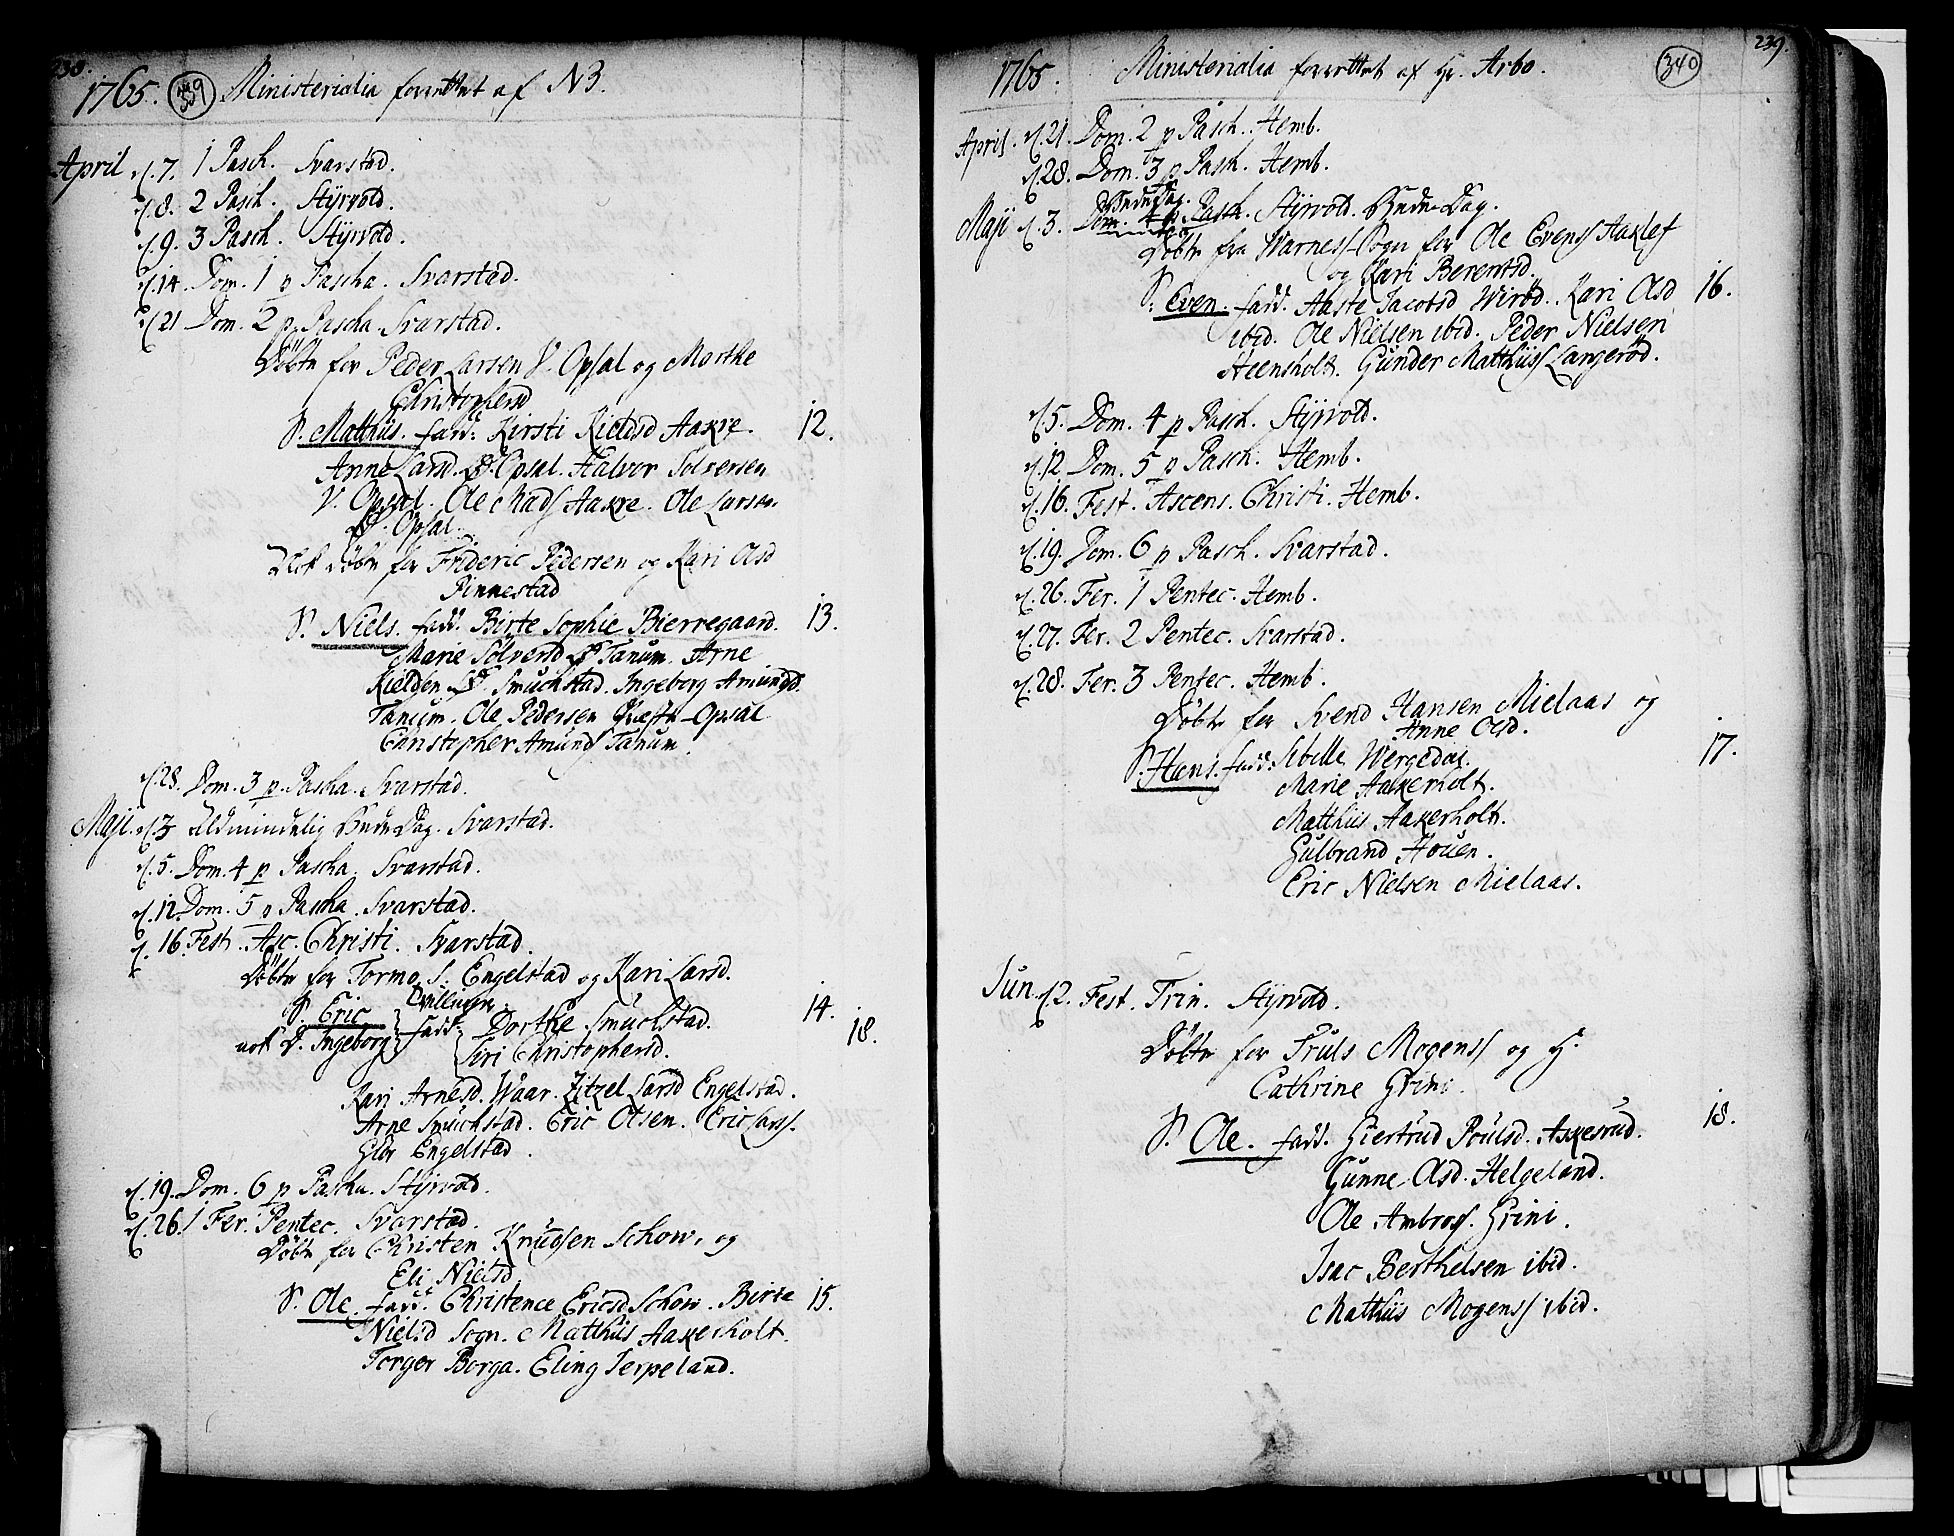 238.
1765. 339 Ministerialia forrettet af NB.
April d. 7. 1 Pasch. Svarstad.
d. 8. 2 Pasch. Styrvold.
d. 9. 3 Pasch. Styrvold.
d. 14. Dom. 1 p Pascha. Svarstad.
d. 21 Dom. 2 p. Pascha. Svarstad.
Döbte for Peder Larsen V. Opsal og Marthe
Christophersd
S. Matthiis. fadd: Kirsti Kieldsd Aakre. 12.
Anne Larsd. Ø. Opsal. Halvor Solversen
V. Opsal. Ole Mads Aakre. Ole Larsen
Ø. Opsal.
Döbte for Frideric Pedersen og Kari Olsd
Pinnestad
S. Niels. fadd. Birte Sophie Bierregaard. 13.
Marie Solversd Ø Tanum. Arne
Kieldsen Ø. Smuchstad. Ingeborg Amundsd.
Tanum. Ole Pedersen Opsal
Christopher Amunds Tanum.
d. 28. Dom. 3 p. Pascha. Svarstad.
Maji. d. 3 Almindelig Bede Dag. Svarstad.
d. 5. Dom. 4 p Pascha. Svarstad.
d. 12. Dom. 5 p Pascha. Svarstad.
d. 16. Fest. Asc. Christi. Svarstad.
Döbte for Tormo S. Engelstad og Kari Larsd.
S. Eric Tvillinger 14.
nok D. Ingeborg fadd. Dorthe Smuchstad. 18.
Siri Christophersd.
Kari Arnesd. Waar. Zitzel Larsd Engelstad.
Arne Smuchstad. Eric Olsen. Eric Larss.
Glör Engelstad.
d. 19. Dom. 6 p Pascha. Styrvold.
d. 26. 1 Fer. Pentec. Svarstad.
Döbte for Christen Knudsen Schow, og
Eli Nielsd
S. Ole. fadd. Christence Ericsd Schow. Birte 15.
Nielsd Sogn. Matthiis Aakerholt.
Torger Borga. Eling Jerpeland.
239.
1765. Ministerialia forrettet af Hr. Arbo. 340
April. d. 21. Dom. 2 p Pasch. Hemb.
d. 28. Dom. 3 p Pasch. Hemb.
Bede Dag.
Maji d. 3. Dom. 4 p Pasch. Styrvold. Bede Dag.
Döbte fra Warness Sogn for Ole Evens Aaklef
og Kari Berentsd.
S. Even. fadd. Aaste Jacobsd Wiröd. Kari Olsd 16.
ibid. Ole Nielsen ibid. Peder Nielsen
Steensholt. Gunder Matthiiss Langeröd.
d. 5. Dom. 4 p Pasch. Styrvold.
d. 12 Dom. 5 p Pasch. Hemb.
d. 16. Fest. Ascens. Christi. Hemb.
d. 19. Dom. 6 p Pasch. Svarstad.
d. 26. Fer. 1 Pentec. Hemb.
d. 27. Fer. 2 Pentec. Svarstad.
d. 28. Fer. 3 Pentec. Hemb.
Döbte for Svend Hansen Mielaas og
Anne Olsd.
S. Hans. fadd: Sibille Wergedal. 17.
Marie Aakerholt.
Matthiis Aakerholt.
Gulbrand Houen.
Eric Nielsen Mielaas.
Jun. d. 2. Fest. Trin. Styrvold.
Döbte for Truls Mogenss og H.
Cathrine Grini.
S. Ole. fadd. Giertrud Poulsd. Askesrud. 18.
Gunne Olsd. Helgeland.
Ole Ambross. Grini.
Isac Berthelsen ibid.
Matthiis Mogenss ibid.